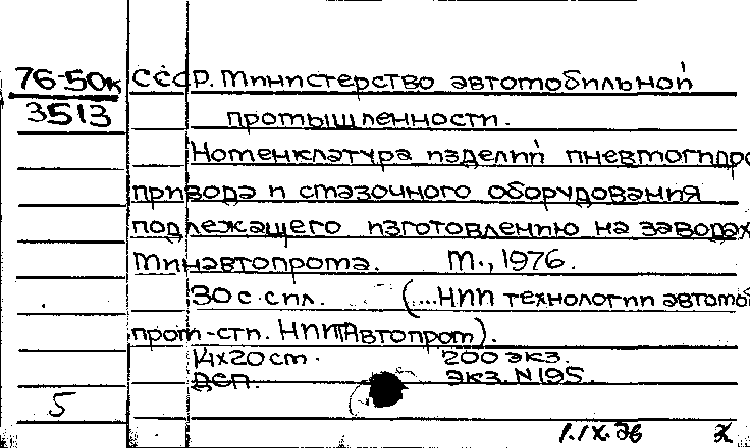 76-50к СССР. Министерство автомобильной
3513 промышленности.
Номенклатура изделий пневмогидро
привода и смазочного оборудования
подлежащего изготовлению на заводах
Минавтопрома. М., 1976.
30 с. спл. (...НИИ технологии автомоб
пром-сти. НИИТАвтопром).
14х20см. 200 экз.
Деп. экз. N195.
5
1.IX.76